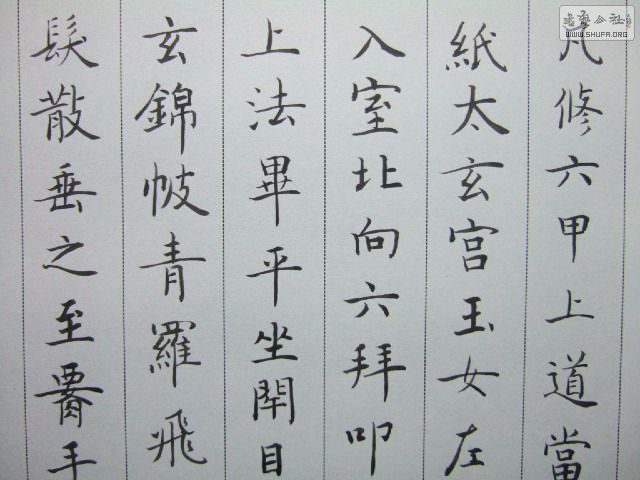 書藝公社
WWW.SHUFA.ORG
凡修六甲上道當
紙太玄宮玉女左
入室北向六拜叩
上法畢平坐閉目
玄錦帔青羅飛
髮散垂之至腰手